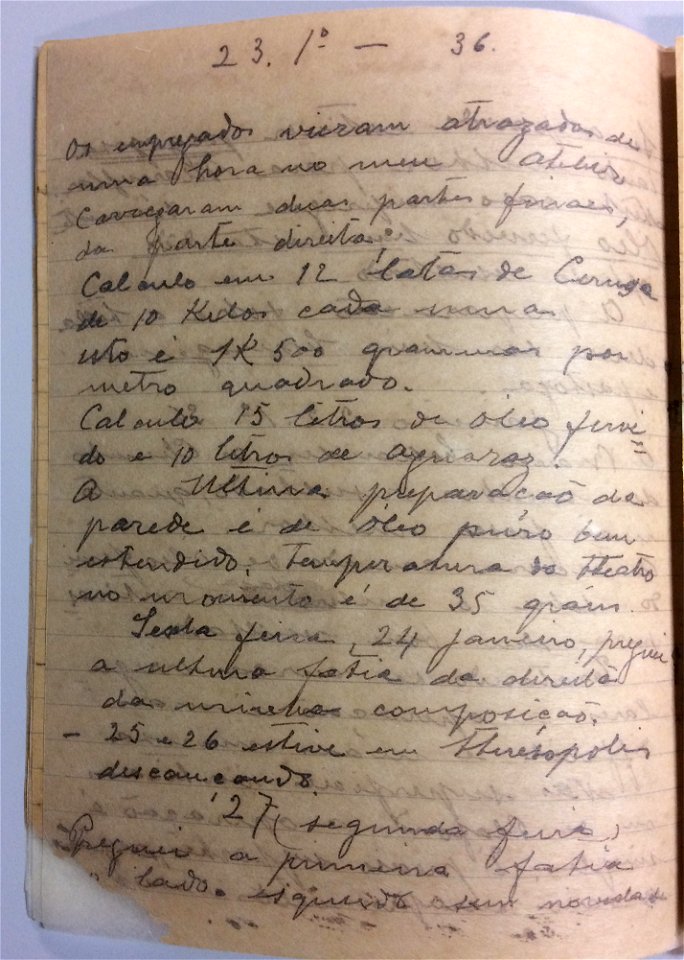 23. 1º — 36.
Os empregados vieram atrazados de
uma hora no meu Atelier
Carregaram duas partes finaes,
da parte direita.
Calculo em 12 latas de Ceruga
de 10 Kilos cada uma
isto é 1K 500 grammas por
metro quadrado.
Calculo 15 litros de óleo fervi
do e 10 litros de aguaraz.
A Ultima preparação da
parede é de Óleo puro bem
estendido. Temperatura do Theatro
no momento é de 35 gráus.
Sexta feira, 24 janeiro, preguei
a ultima fatia da direita
da minha composição.
- 25 e 26 estive em Therésopolis
descançando.
27 (segunda feira)
Preguei a primeira fatia
lado esquerdo sem novidade